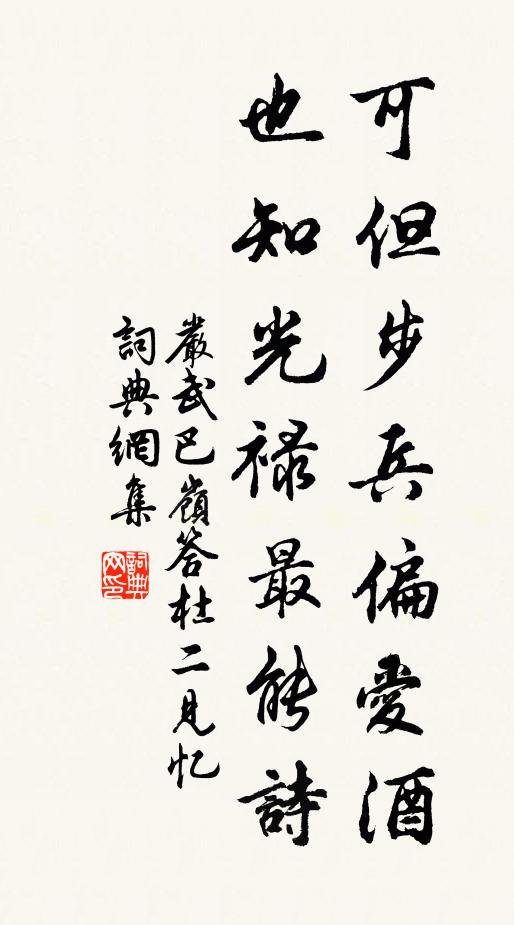 可但步兵偏愛酒
也知光祿最能詩
嚴武巴嶺答杜二見忆
詞典網集
詞典網印